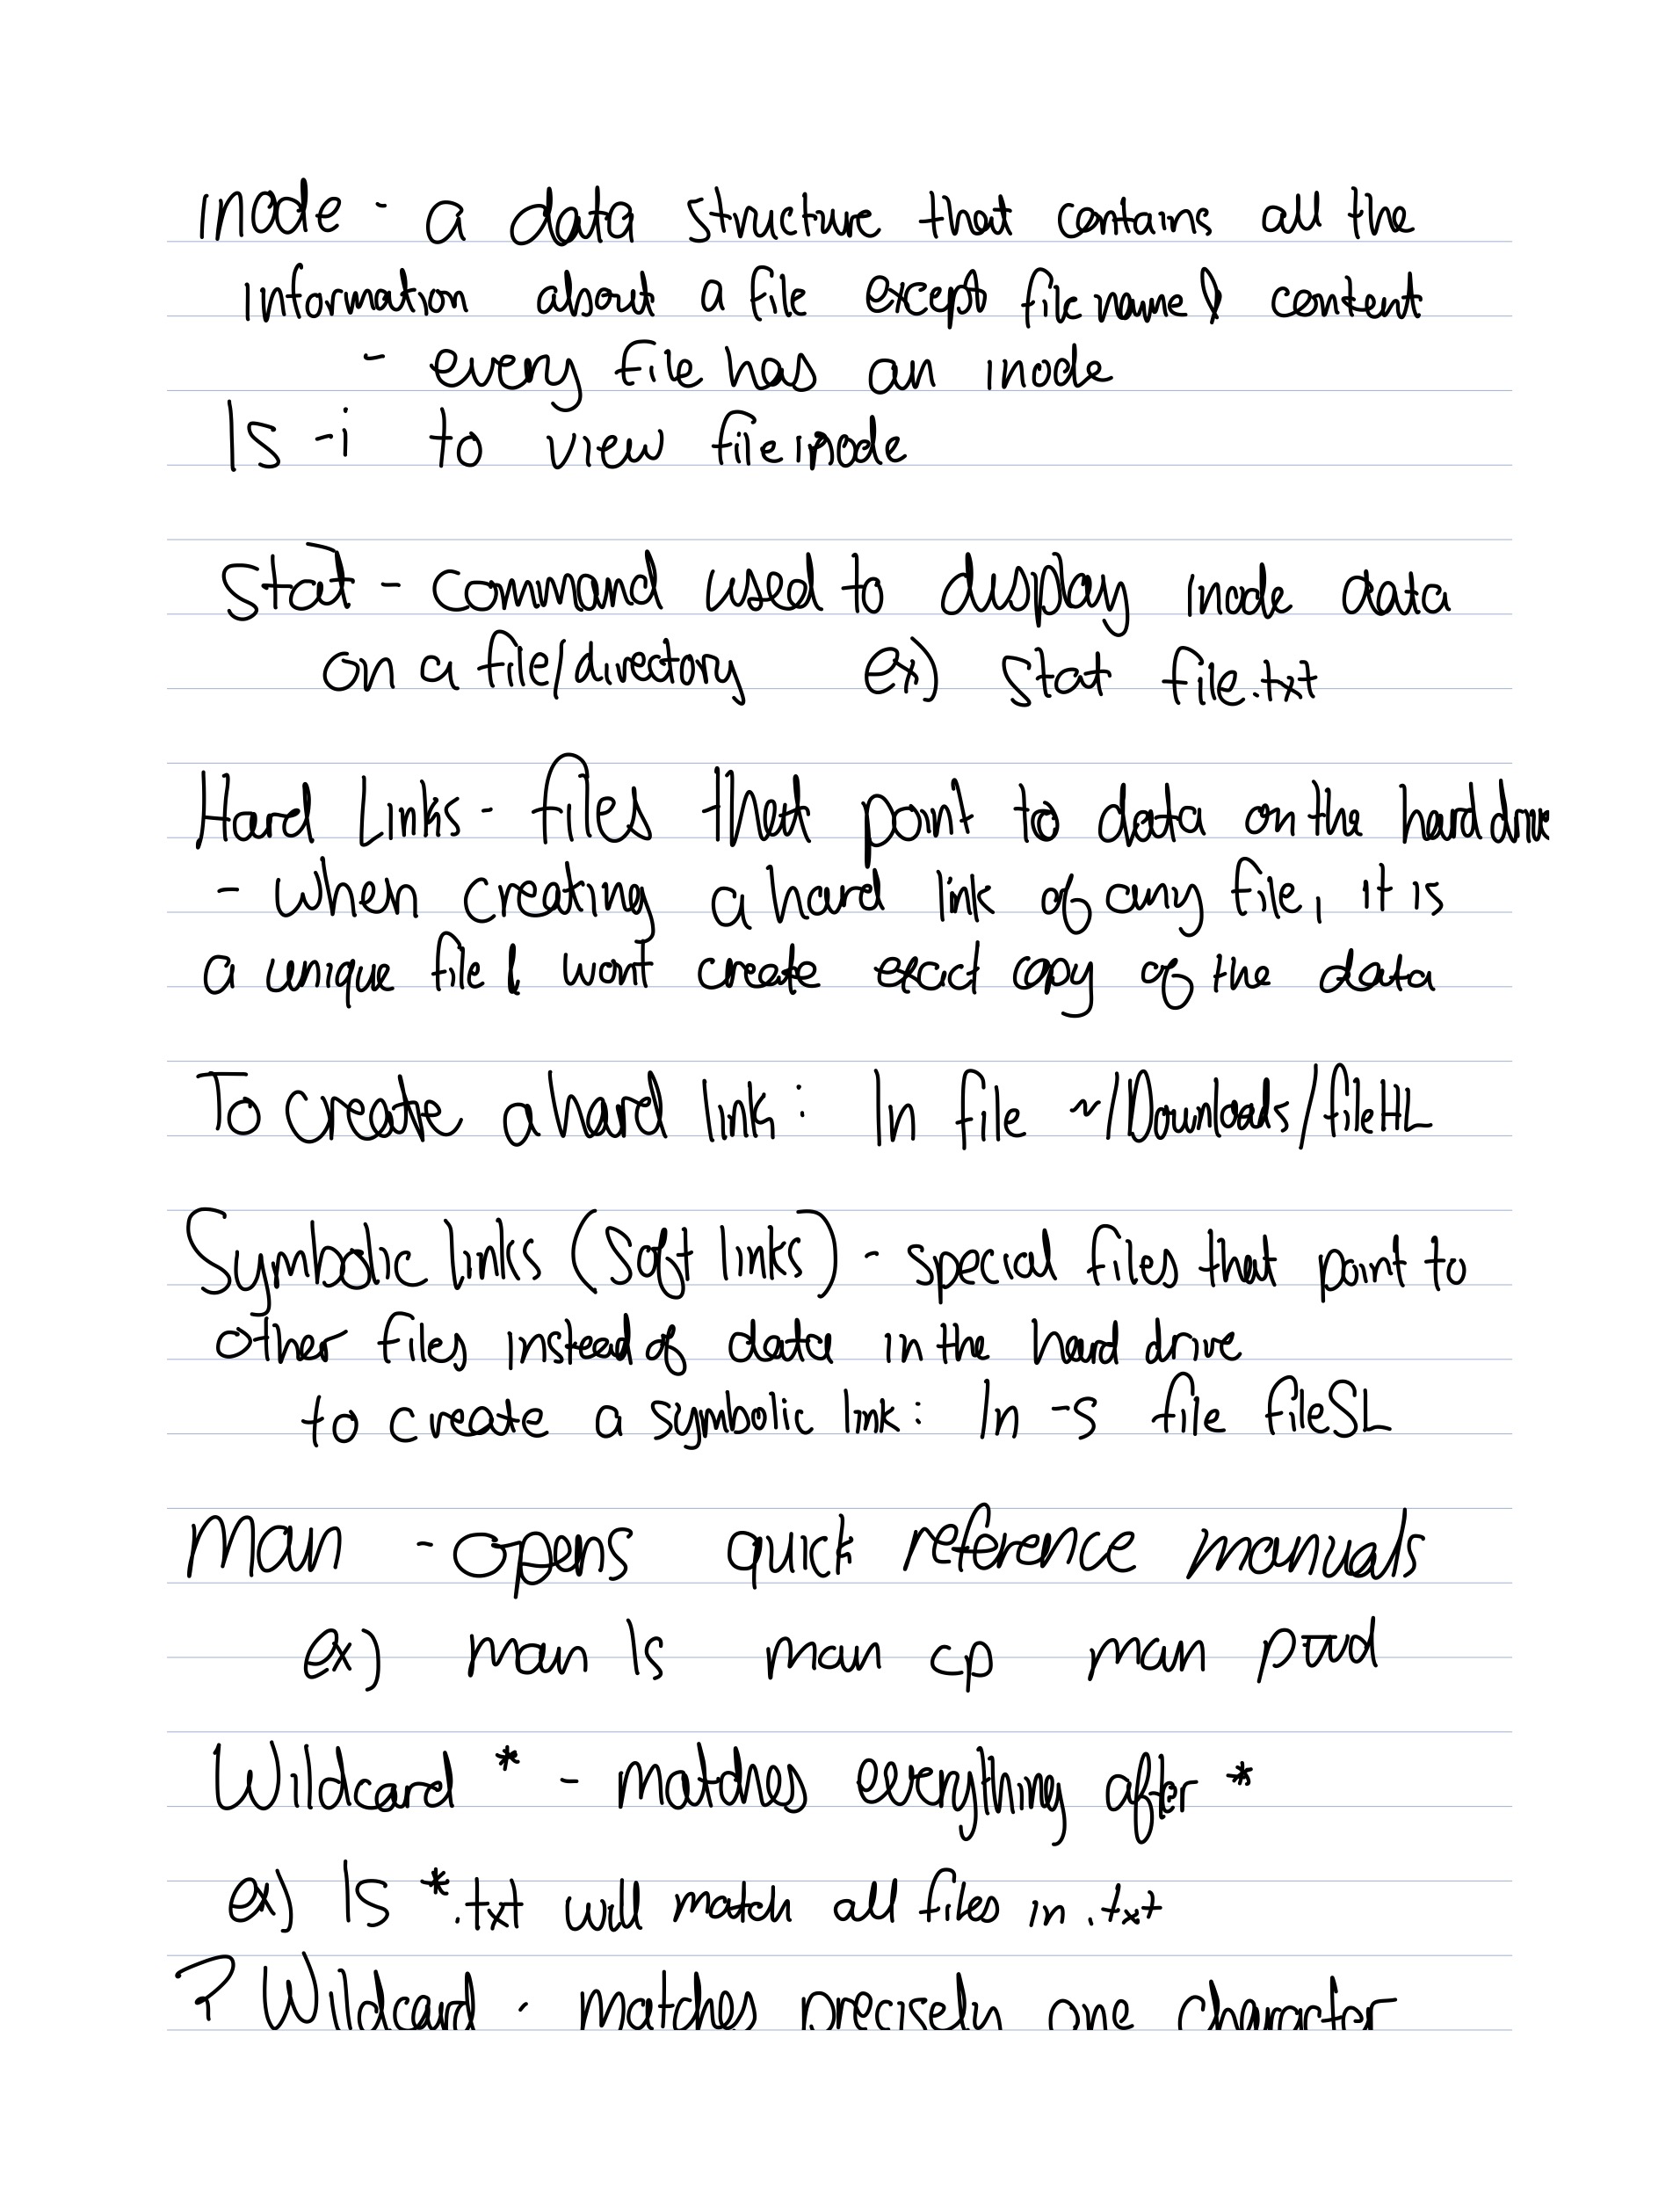 inode - a data structure that contains all the
information about a file except file name & content
- every file has an inode
ls -i to view file inode
Stat - command used to display inode data
on a file/directory ex) stat file.txt
Hard Links - files that point to data on the hard drive
- when creating a hard link of any file, it is
a unique file & wont create exact copy of the data
To create a hard link: ln file ~/Downloads/fileHL
Symbolic links (Soft links) - special files that point to
other files instead of data in the hard drive
to create a symbolic link: ln -s file fileSL
Man - opens quick reference manuals
ex) man ls man cp man pwd
Wildcard * - matches everything after *
ex) ls *.txt will match all files in .txt
? Wildcard - matches precisely one character